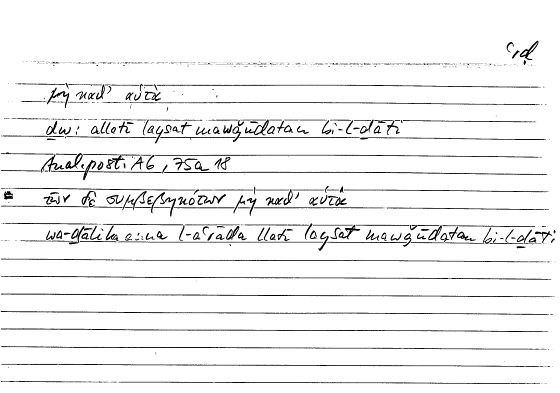 ʿrḍ
μὴ καθ' αὑτὰ
dw: allatī laysat mawǧūdatan bi-l-ḏāti
Anal.post. A6, 75a 18
τῶν δὲ συμβεβηκότων μὴ καθ' αὑτὰ
wa-ḏālika anna l-aʿrāḍa llatī laysat mawǧūdatan bi-l-ḏāti